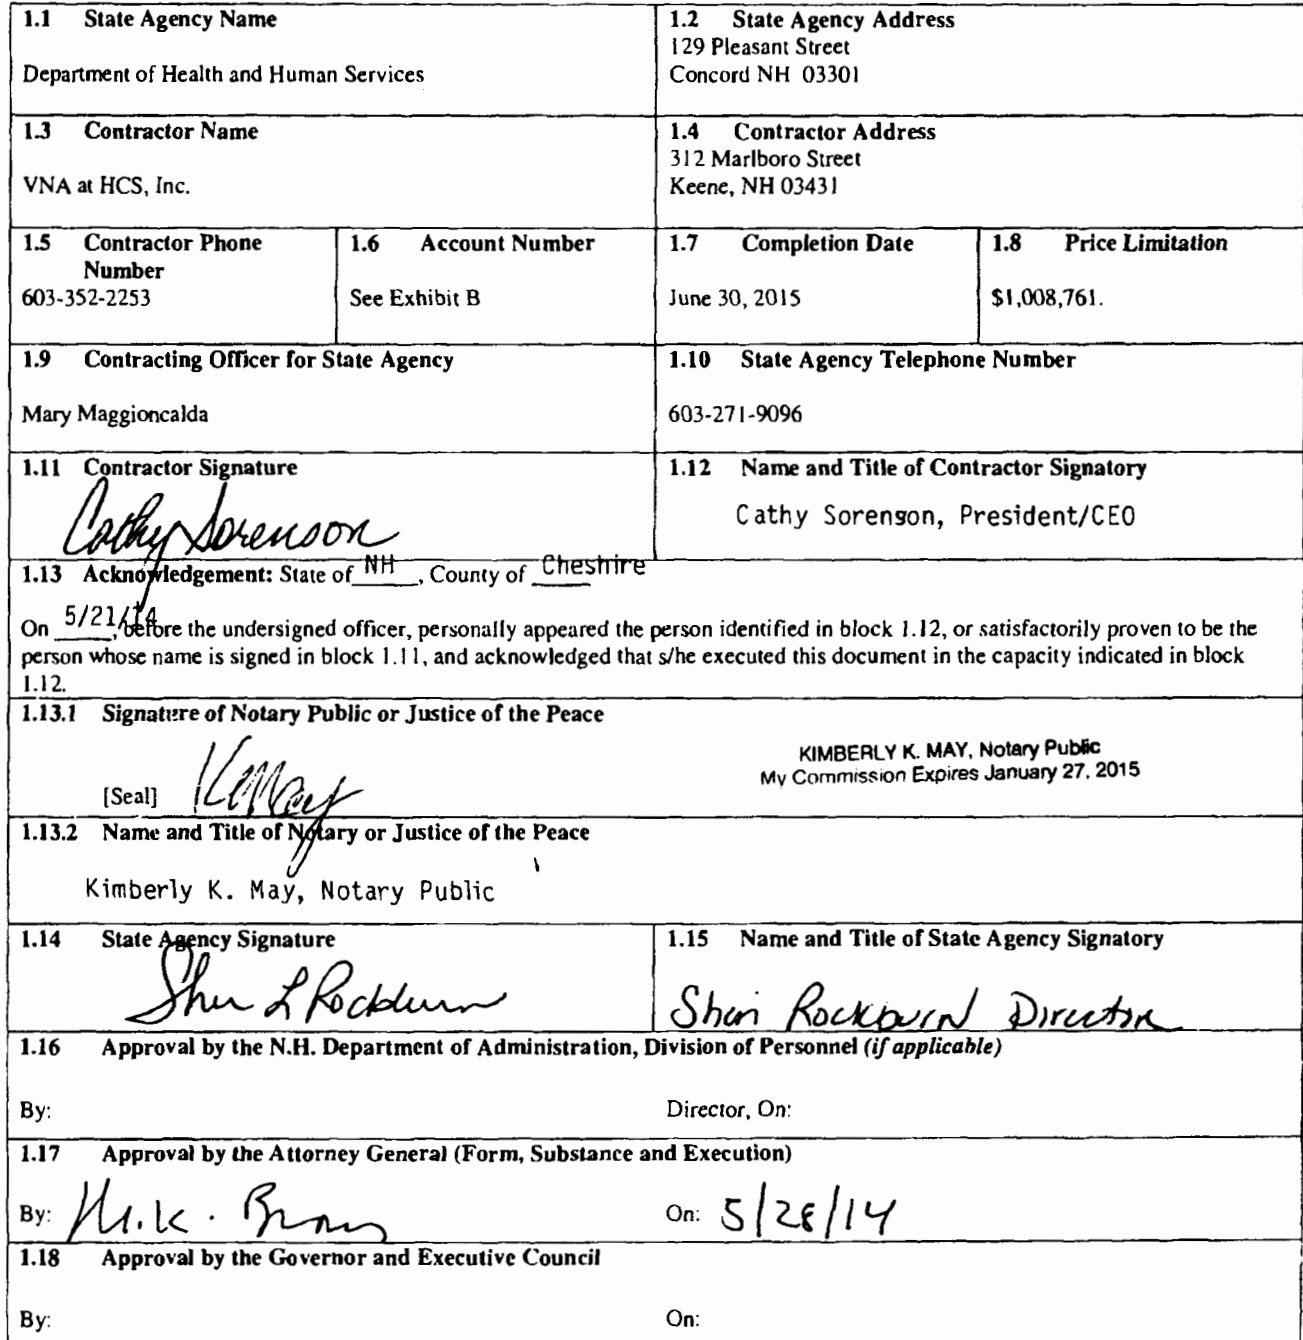 1.1 State Agency Name
Department of Health and Human Services
1.2 State Agency Address
129 Pleasant Street
Concord NH 03301
1.3 Contractor Name
VNA at HCS, Inc.
1.4 Contractor Address
312 Marlboro Street
Keene, NH 03431
1.5 Contractor Phone
Number
603-352-2253
1.6 Account Number
See Exhibit B
1.7 Completion Date
June 30, 2015
1.8 Price Limitation
$1,008,761.
1.9 Contracting Officer for State Agency
Mary Maggioncalda
1.10 State Agency Telephone Number
603-271-9096
1.11 Contractor Signature
Cathy Sorenson
1.12 Name and Title of Contractor Signatory
Cathy Sorenson, President/CEO
1.13 Acknowledgement: State of NH, County of Cheshire
On 5/21/14, before the undersigned officer, personally appeared the person identified in block 1.12, or satisfactorily proven to be the
person whose name is signed in block 1.11, and acknowledged that s/he executed this document in the capacity indicated in block
1.12.
1.13.1 Signature of Notary Public or Justice of the Peace
KIMBERLY K. MAY, Notary Public
My Commission Expires January 27, 2015
[Seal] K May
1.13.2 Name and Title of Notary or Justice of the Peace
Kimberly K. May, Notary Public
1.14 State Agency Signature
Sheri L Rockburn
1.15 Name and Title of State Agency Signatory
Sheri Rockburn Director
1.16 Approval by the N.H. Department of Administration, Division of Personnel (if applicable)
By:
Director, On:
1.17 Approval by the Attorney General (Form, Substance and Execution)
By:
On: 5/28/14
1.18 Approval by the Governor and Executive Council
By:
On: